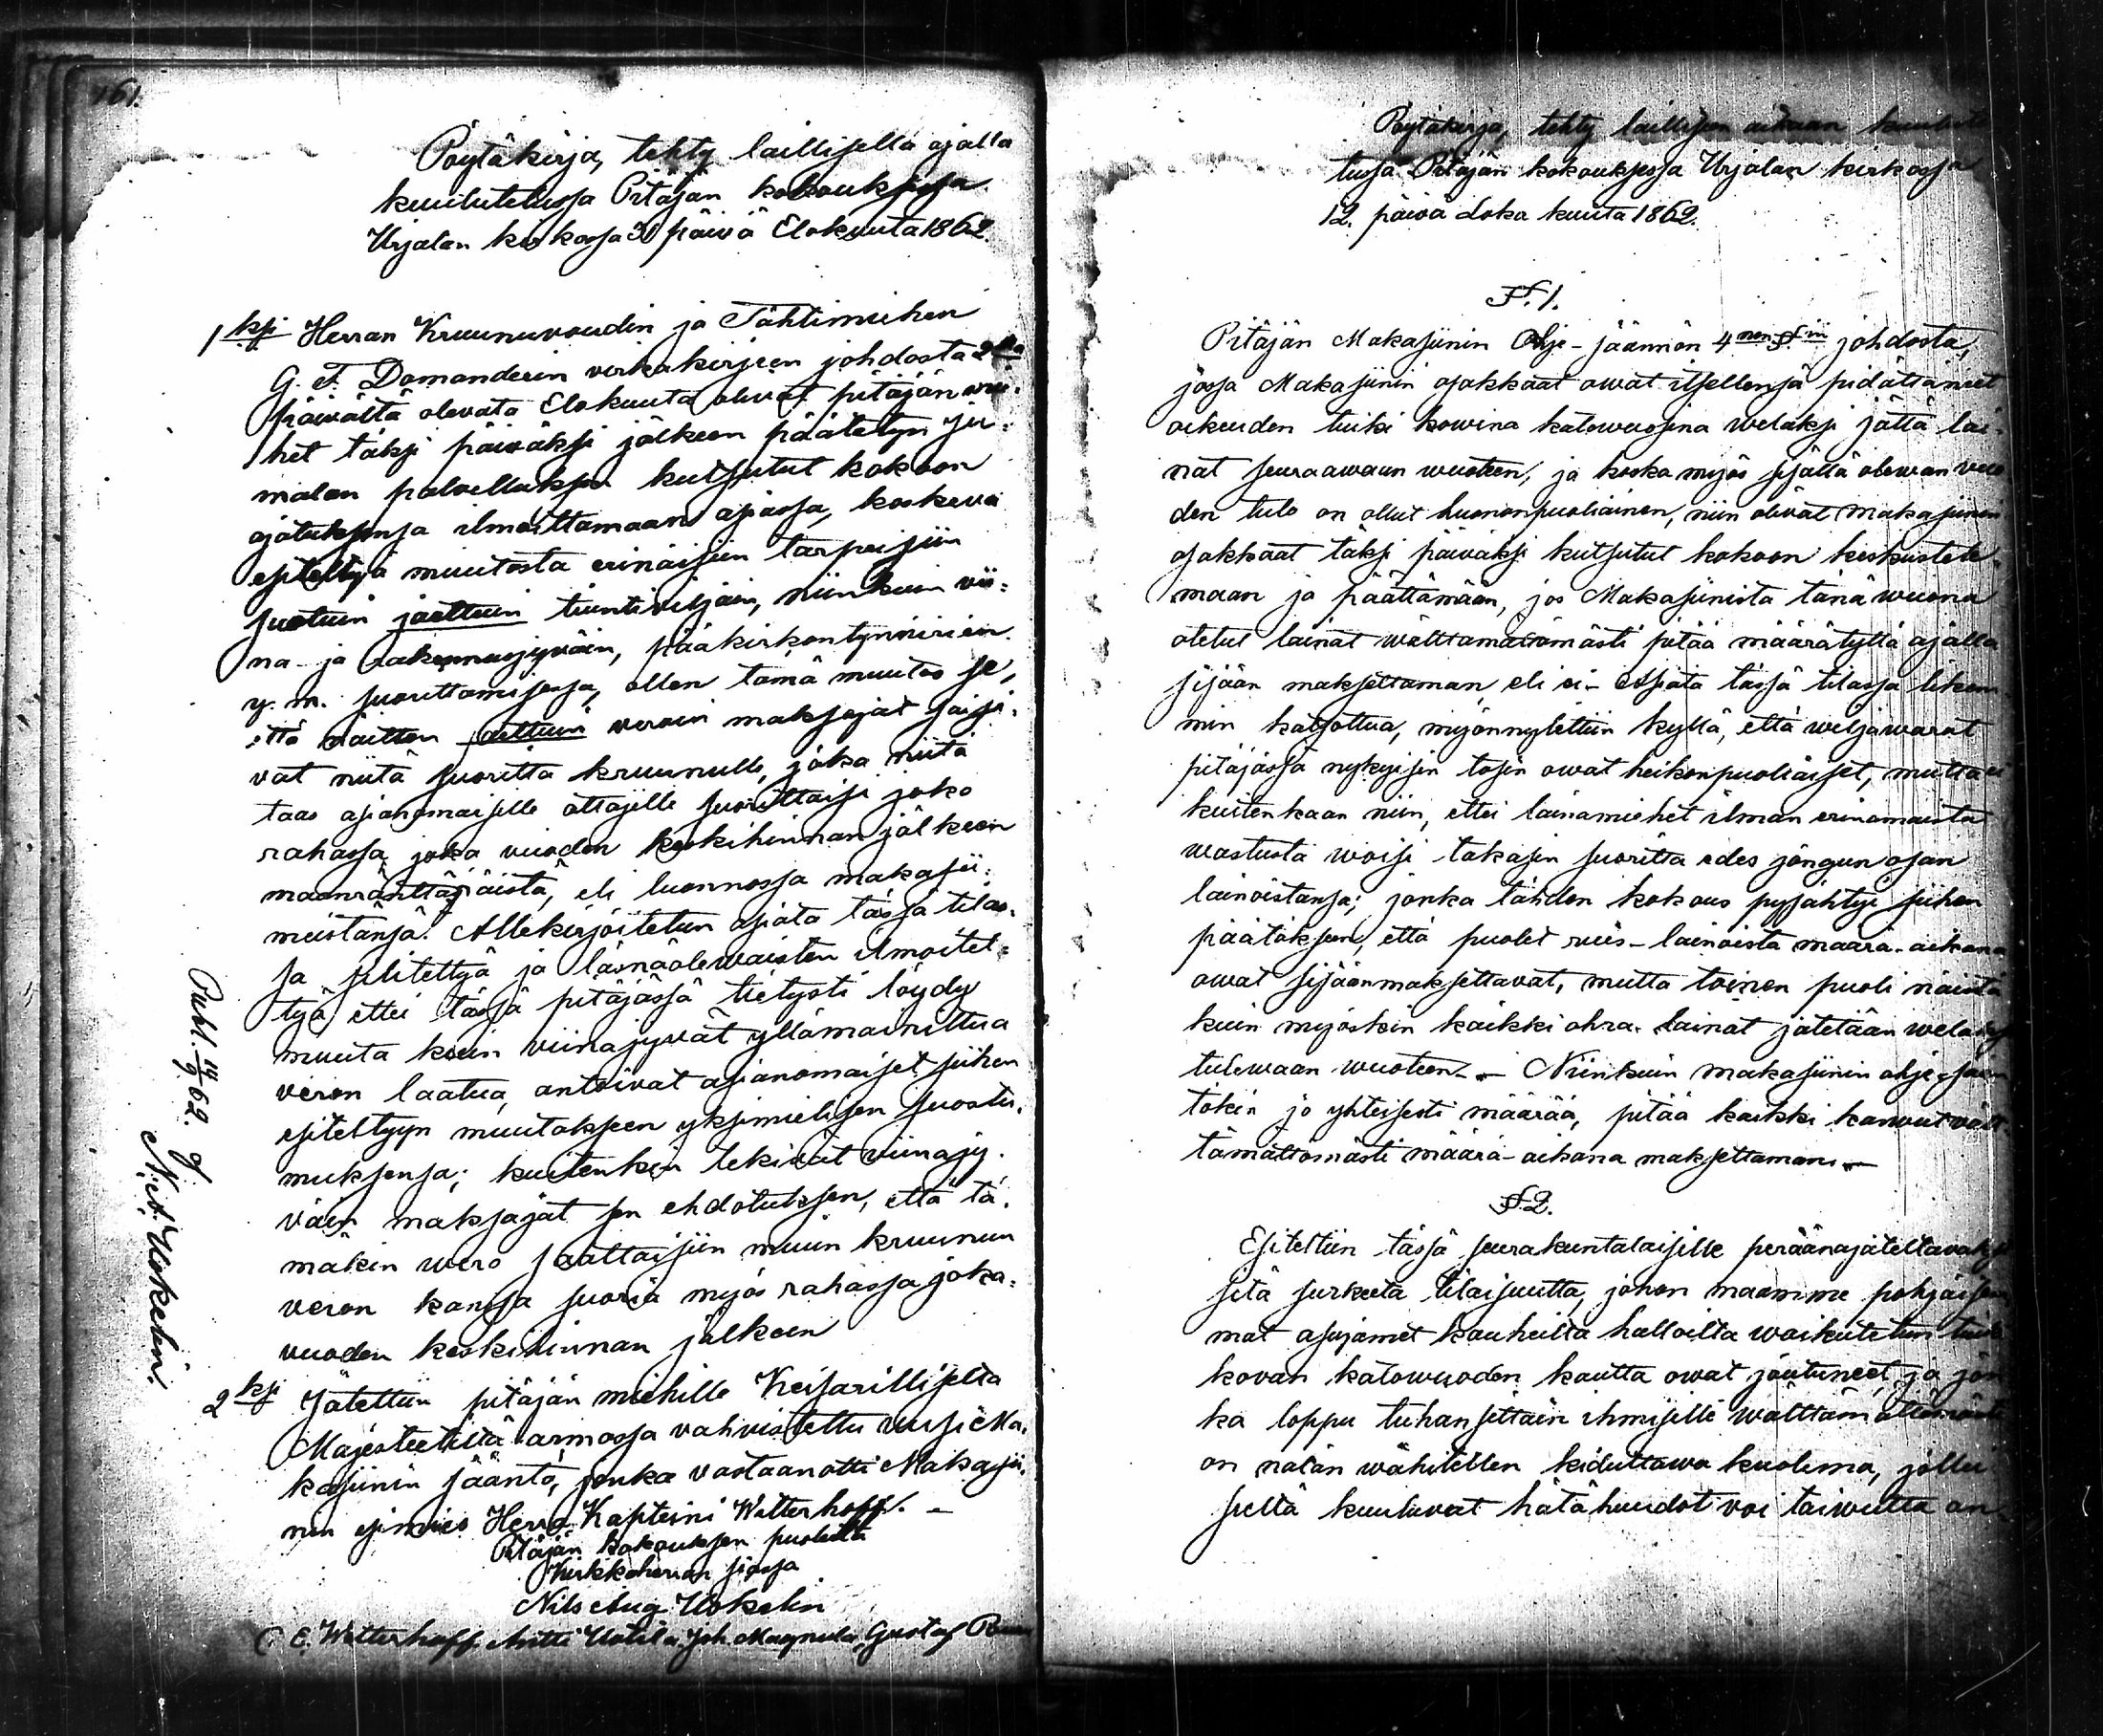 161.
Pöytäkirja, tehty laillisella ajalla
kuulutetussa Pitäjän kokouksessa
Urjalan kirkossa 31 päivä Elokuuta 1862.
1ksi Herran Kruunuvoudin ja Tähtimiehen
G. F. Domanderin virkakirjeen johdosta 2na
päivältä olevata Elokuuta olivat pitäjän mie-
het täksi päiväksi jälkeen päätetyn Ju-
malan palvelluksen kutsutut kokoon
ajatuksensa ilmoittamaan asiassa, koskeva
esiteltyä muutosta erinäisten tarpeisiin
suotuin jaettuin tiuntiviljain, niinkuin vii-
na- ja rakennusjyväin, pääkirkontynnirien
y. m. suorittamisessa, ollen tämä muutos se,
että näitten jaettuin veroin maksajat saisi-
vat niitä suoritta kruunulle, joka niitä
taas asianomaisille ottajille suorittaisi joko
rahassa joka vuoden keskihinnan jälkeen
maanränttäjäistä, eli luonnossa makasii-
nistansa. Allekirjoitetun asiata tässä tilas-
sa selitettyä ja läsnäolewaisten ilmoitet-
tyä ettei tässä pitäjässä tietysti löydy
muuta kuin viinajyvät yllämainittua
veron laatua, antoivat asianomaiset siihen
esiteltyyn muutokseen yksimielisen suostu-
muksensa; kuitenkin tekivät viinajy-
väin maksajat sen ehdotuksen, että tä-
mäkin wero saattaisiin muun kruunun
veron kanssa suoria myös rahassa joka-
vuoden keskihinnan jälkeen
2ksi Jätettiin pitäjän miehille Keisarilliselta
Majesteetiltä armossa vahvistettu uusi Ma-
kasiinin sääntö, jonka vastaanotti Makasii-
nin esimies Herra Kapteini Wetterhoff. –
Pitäjän kokouksen puolesta
Kirkkoherran siassa
Nils Aug. Uskelin
C. E. Wetterhoff. Antti Uotila. Joh. Magnula, Gustaf
Publ. 14/9 62. g.
N. A. Uskelin.
Pöytäkirja, tehty laillisen aikaan kuulute-
tussa Pitäjän kokouksessa Urjalan kirkossa
12. päivä Loka kuuta 1862.
§. 1.
Pitäjän Makasiinin Ohje-säännön 4nen §:in johdosta,
jossa Makasiinin osakkaat owat itsellensä pidättäneet
oikeuden tuiki kowina katowuosina welaksi jättä lai-
nat seuraawaan wuoteen, ja koska myös sisällä olewan vuo
den tulo on ollut huononpuoliainen, niin olivat makasiinin
osakkaat täksi päiväksi kutsutut kokoon keskustele-
maan ja päättämään, jos Makasiinista tänä wuonna
otetut lainat wälttämättömästi pitää määrätyllä ajalla
sisään maksettaman, eli ei – Asiata tässä tilassa likem-
min katsottua, myönnytettiin kyllä, että wiljawarat
pitäjässä nykyisin tosin owat heikonpuoliaiset, mutta ei
kuitenkaan niin, ettei lainamiehet ilman erinomaista
wastusta woisi takasin suoritta edes jongun osan
lainoistansa; jonka tähden kokous pysähtyi siihen
päätöksen, että puolet ruis-lainoista määrä-aikana
owat sisäänmaksettavat, mutta toinen puoli näistä
kuin myöskin kaikki ohra-lainat jätetään welaksi
tulewaan wuoteen. – Niinkuin makasiinin ohje-sään
tökin jo yhteisesti määrää, pitää kaikki kaswut vält-
tämättömästi määrä-aikana maksettaman. –
§. 2.
Esiteltiin tässä seurakuntalaisille peräänajateltavaksi
sitä surkeeta tilaisuutta, johon maamme pohjaisem
mat asujamet kauheilta halloilta waikutetun tuik
kovan katowuoden kautta owat joutuneet, ja jon
ka loppu tuhansittain ihmisille wälttämättömästi
on nälän wähitellen kiduttawa kuolema, jollei
sieltä kuuluvat hätähuudot voi taiwutta an-